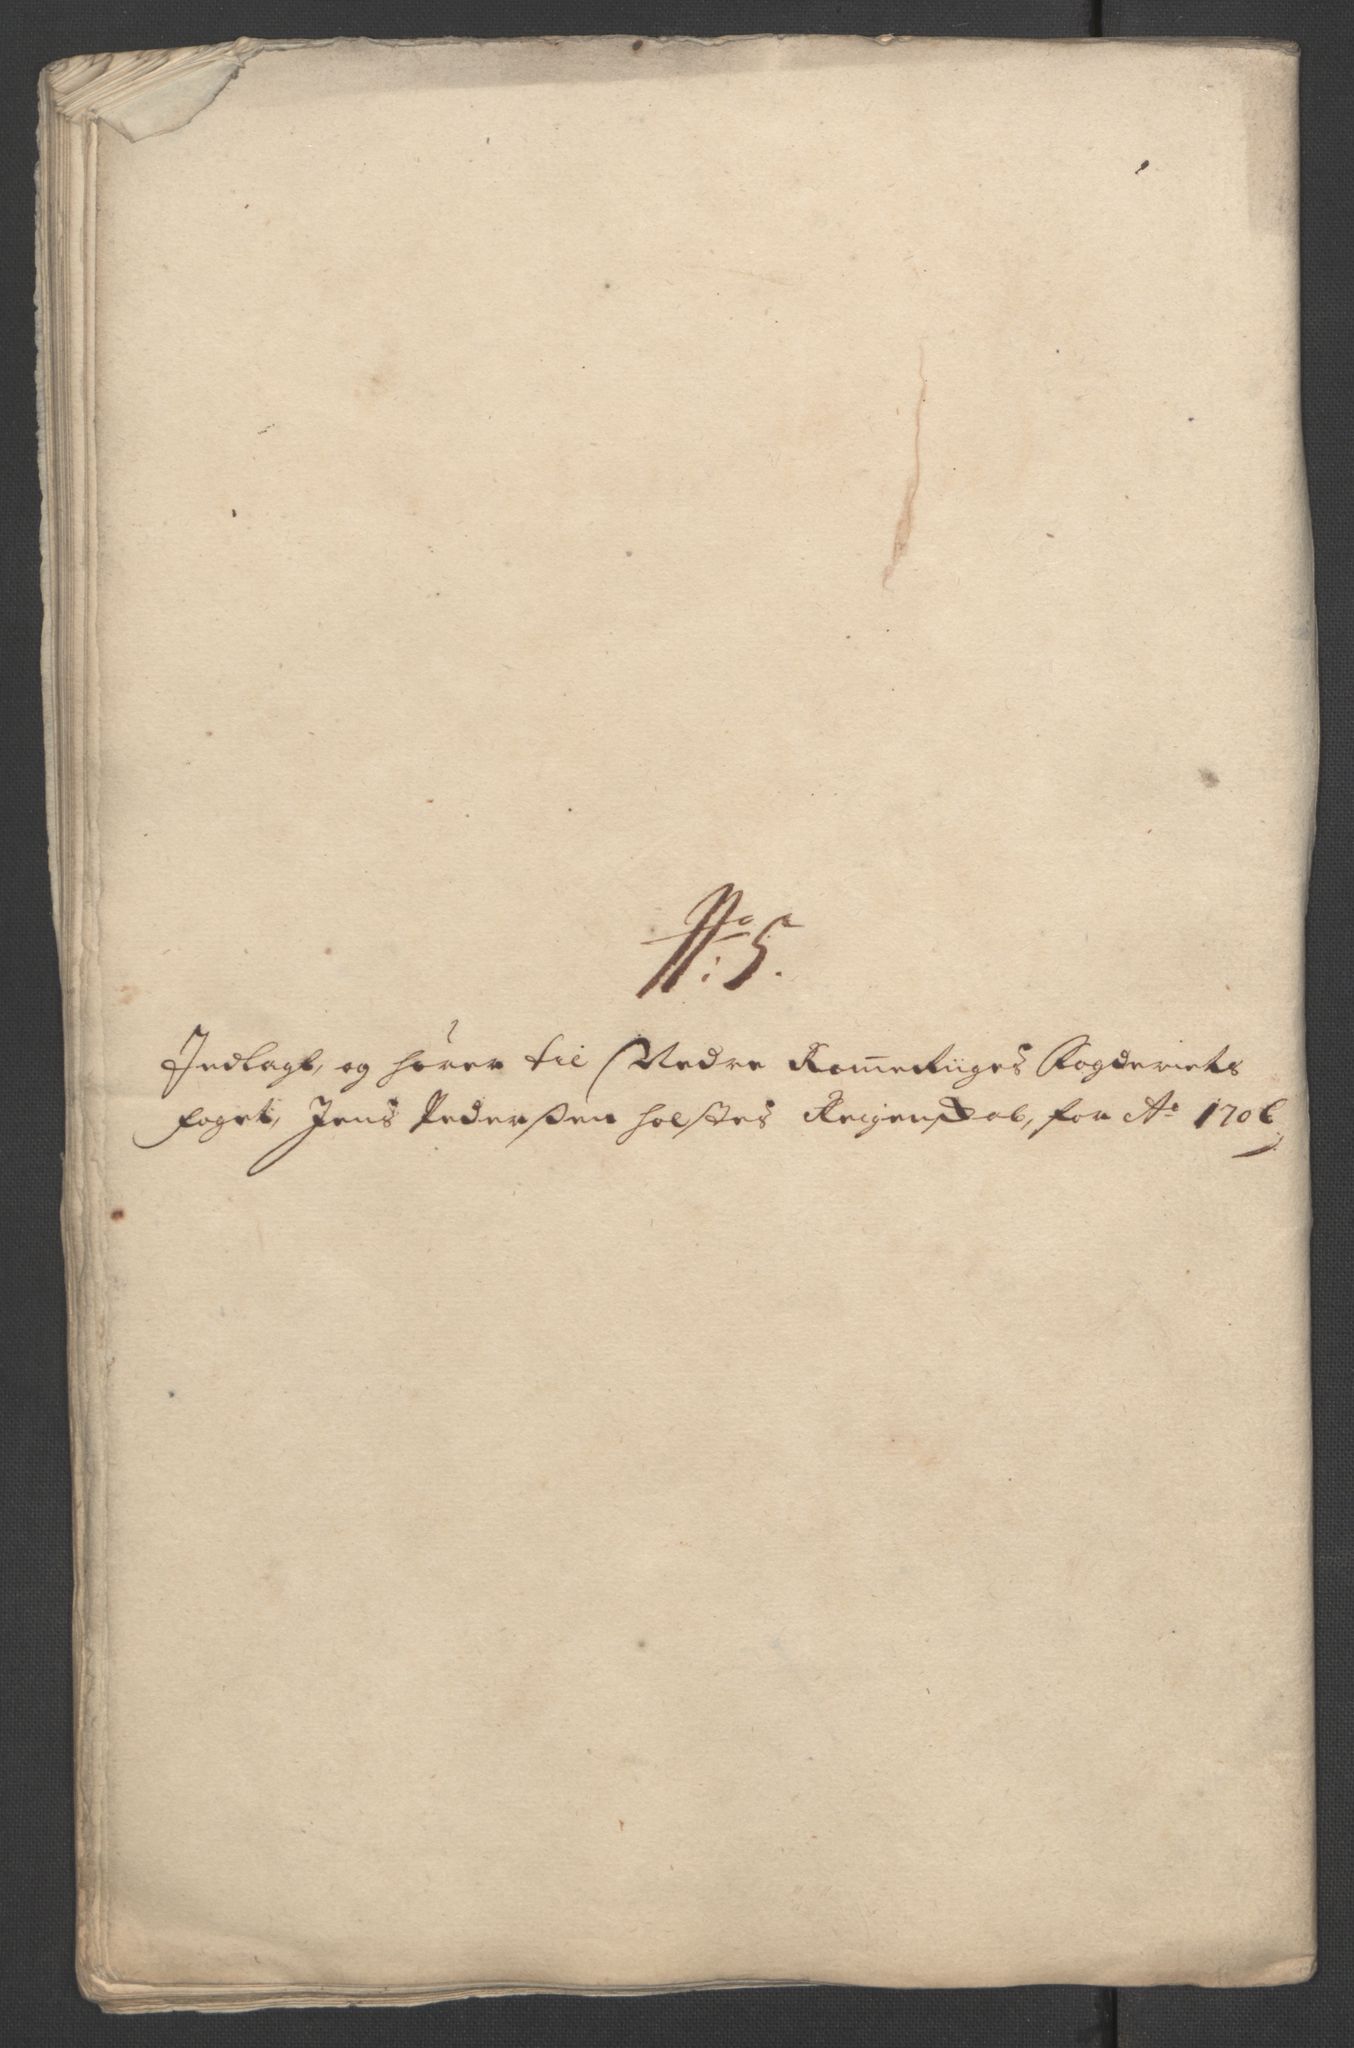 No: 5.
Indlagt, og hører til Nedre Rommeriiges Fogderiets
foget, Jens Pederßen Holstes Reigenskab, for Ao 1706